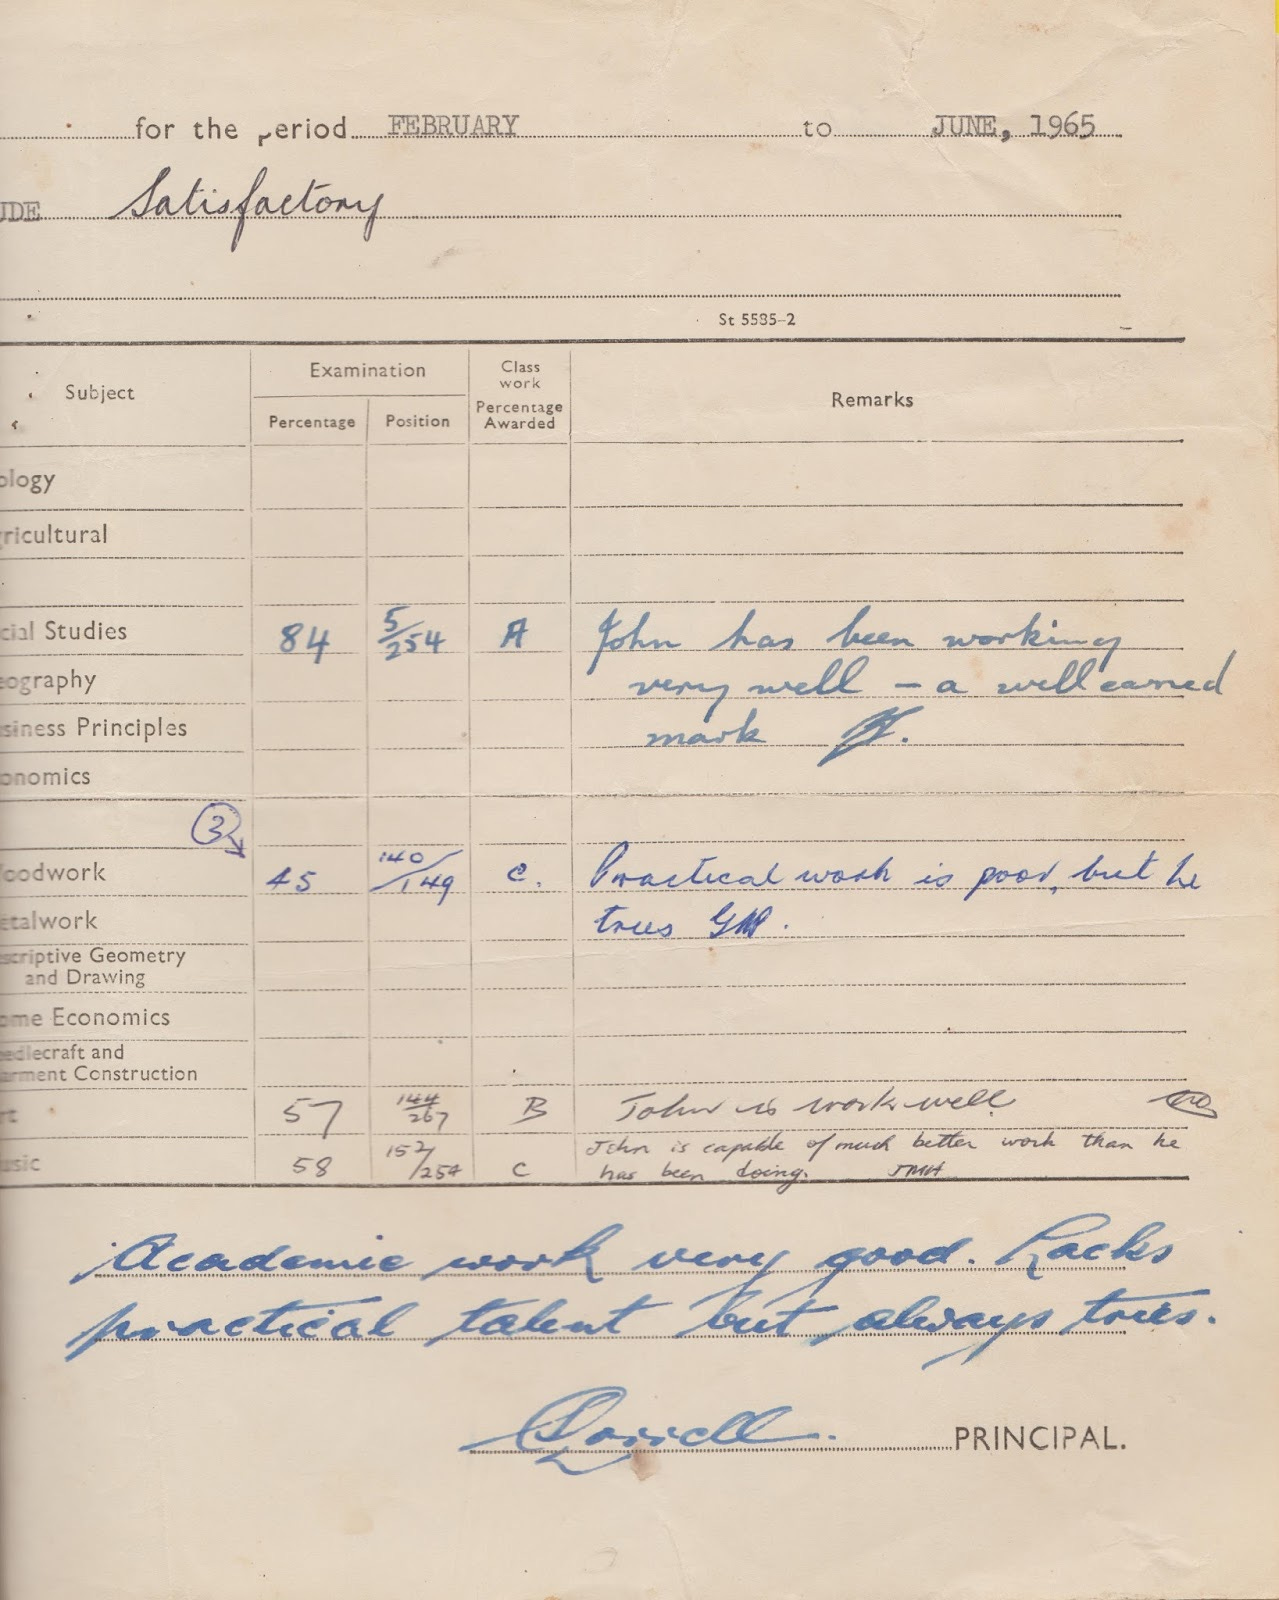 for the period FEBRUARY to JUNE, 1965
UDE Satisfactory
St 5585-2
Subject Examination Class work Percentage Awarded Remarks
Percentage Position
ology
gricultural
cial Studies 84 5/254 A John has been working
eography very well – a well earned
siness Principles mark
onomics
3
oodwork 45 140/149 C. Practical work is poor, but he
etalwork tries GMP.
scriptive Geometry
and Drawing
ome Economics
edlecraft and
arment Construction
rt 57 144/267 B John is work well.
usic 58 152/254 C John is capable of much better work than he
has been doing. JMH
Academic work very good. Lacks
practical talent but always tries.
PRINCIPAL.